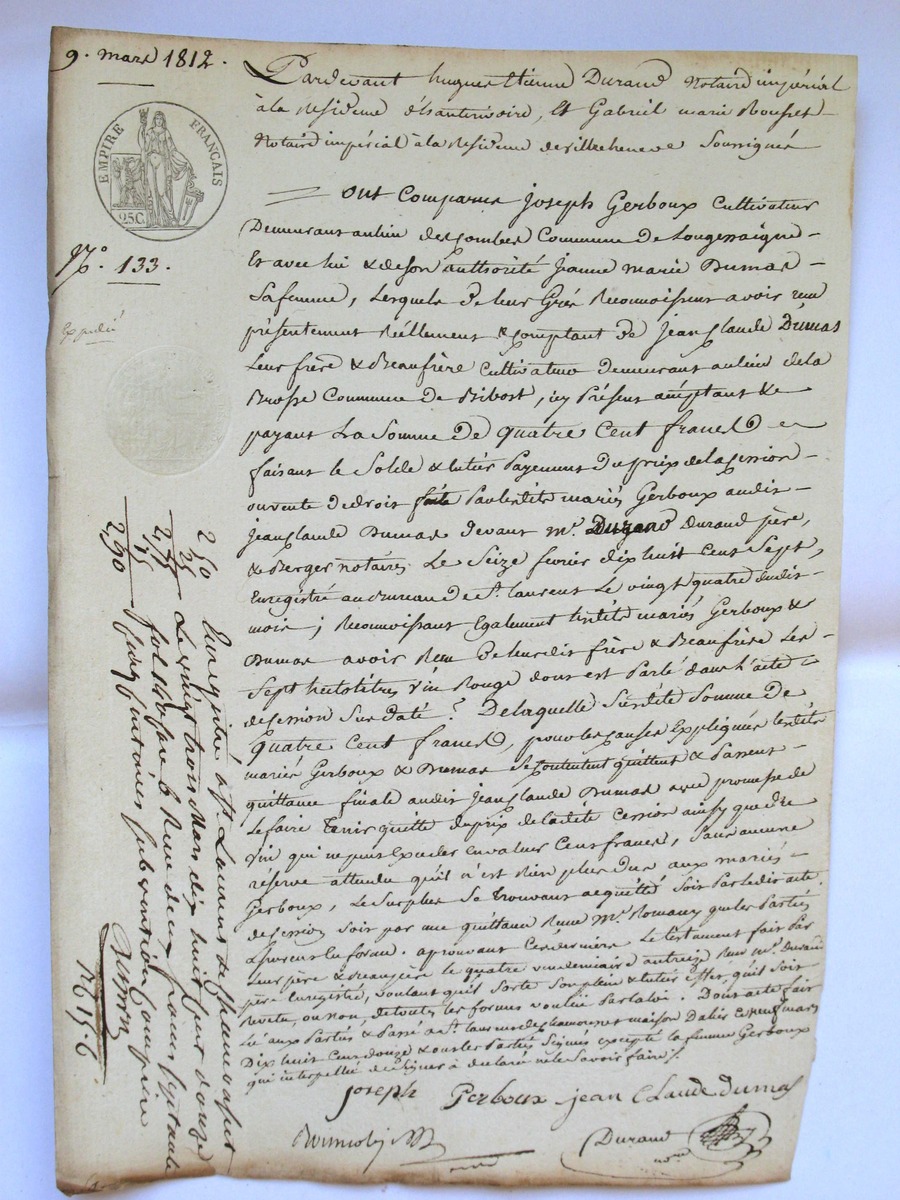 9. mars 1812.
EMPIRE FRANÇAIS
25C.
N.º 133.
Expédié
Pardevant hugues Etienne Durand Notaire impérial
à la Residence , Et Gabriel marie Rousset
Notaire impérial à la Residence de villecheneve Soussignés
Ont Comparus Joseph Gerboux Cultivateur
Demeurant au lieu des combes Commune de Longessaigne
Et avec lui & de Son authorité Jeanne marie Dumas
Sa femme, Lesquels de leur Gré Reconnoissent avoir reçu
présentement Réellement & comptant de Jean Claude Dumas
Leur frère & Beaufrère Cultivateur demeurant au lieu de la
Brosse Commune de Bibost, icy Présent acceptant &
payant La Somme De quatre Cent francs
faisant le Solde & entier Payement du prix de la cession
ou vente de droit faite Par lesdits mariés Gerboux audit
Jean Claude Dumas devant Mᵉ. Durand père,
& Berger notaires Le Seize fevrier dix huit Cent Sept,
Enregistré au Bureau de St. laurent Le vingt quatre dudit
mois ; Reconnoissant Egalement lesdits mariés Gerboux &
Dumas avoir Reçu De leurdit frère & Beaufrère Les
Sept hectolitres vin Rouge dont est Parlé dans L'acte
de Cession Sus daté . De laquelle Susdite Somme de
Quatre Cent francs, pour les causes Expliquées lesdits
mariés Gerboux & Dumas Se contentent quittent & Passent
quittance finale audit Jean Claude Dumas avec promesse de
Le faire tenir quitte du prix de ladite Cession ainsy que du
vin qui ne peut Exceder en valeur Cent francs, Sans aucune
réserve attendu qu'il n'est Rien plus du aux mariés
Gerboux, Le Surplus Se trouvant acquitté Soit Par ledit acte
de Cession Soit par une quittance Reçue Mᵉ. Romany que les Parties
. aprouvant Ces dernière Le testament fait Par
Leur père & Beaupère le quatre vendemiaire an treize Reçu Mᵉ. Durand
père Enregistré, voulant qu'il Sorte Son plein & entier Effet, qu'il Soit
Revetu, ou Non, de toutes les formes voulue Par la loi . Dont acte fait
Lu aux Parties & Passé à St. laurent de chamousset maison Dalier Ce neuf mars
Dix huit Cent douze & ont les Parties Signés excepté la femme Gerboux
qui interpellée de Signer a déclaré ne le Savoir faire.
joseph Gerboux jean Claude dumas
Durand
nore
Enregistré à St. Laurent de Chamousset
Le vingt trois Mars dix huit Cent douze
fol. Reçu deux francs Cinquante
Cinq Centimes Subvention Comprise
2,50
25
2,75
15
2,90